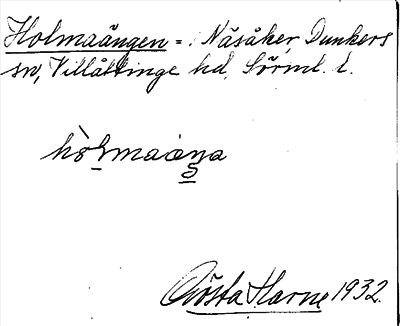 Holmaängen = Näsåker, Dunkers
sn, Villåttinge hd, Sörml. l.
hòlmaäŋa
Gösta Harne 1932.